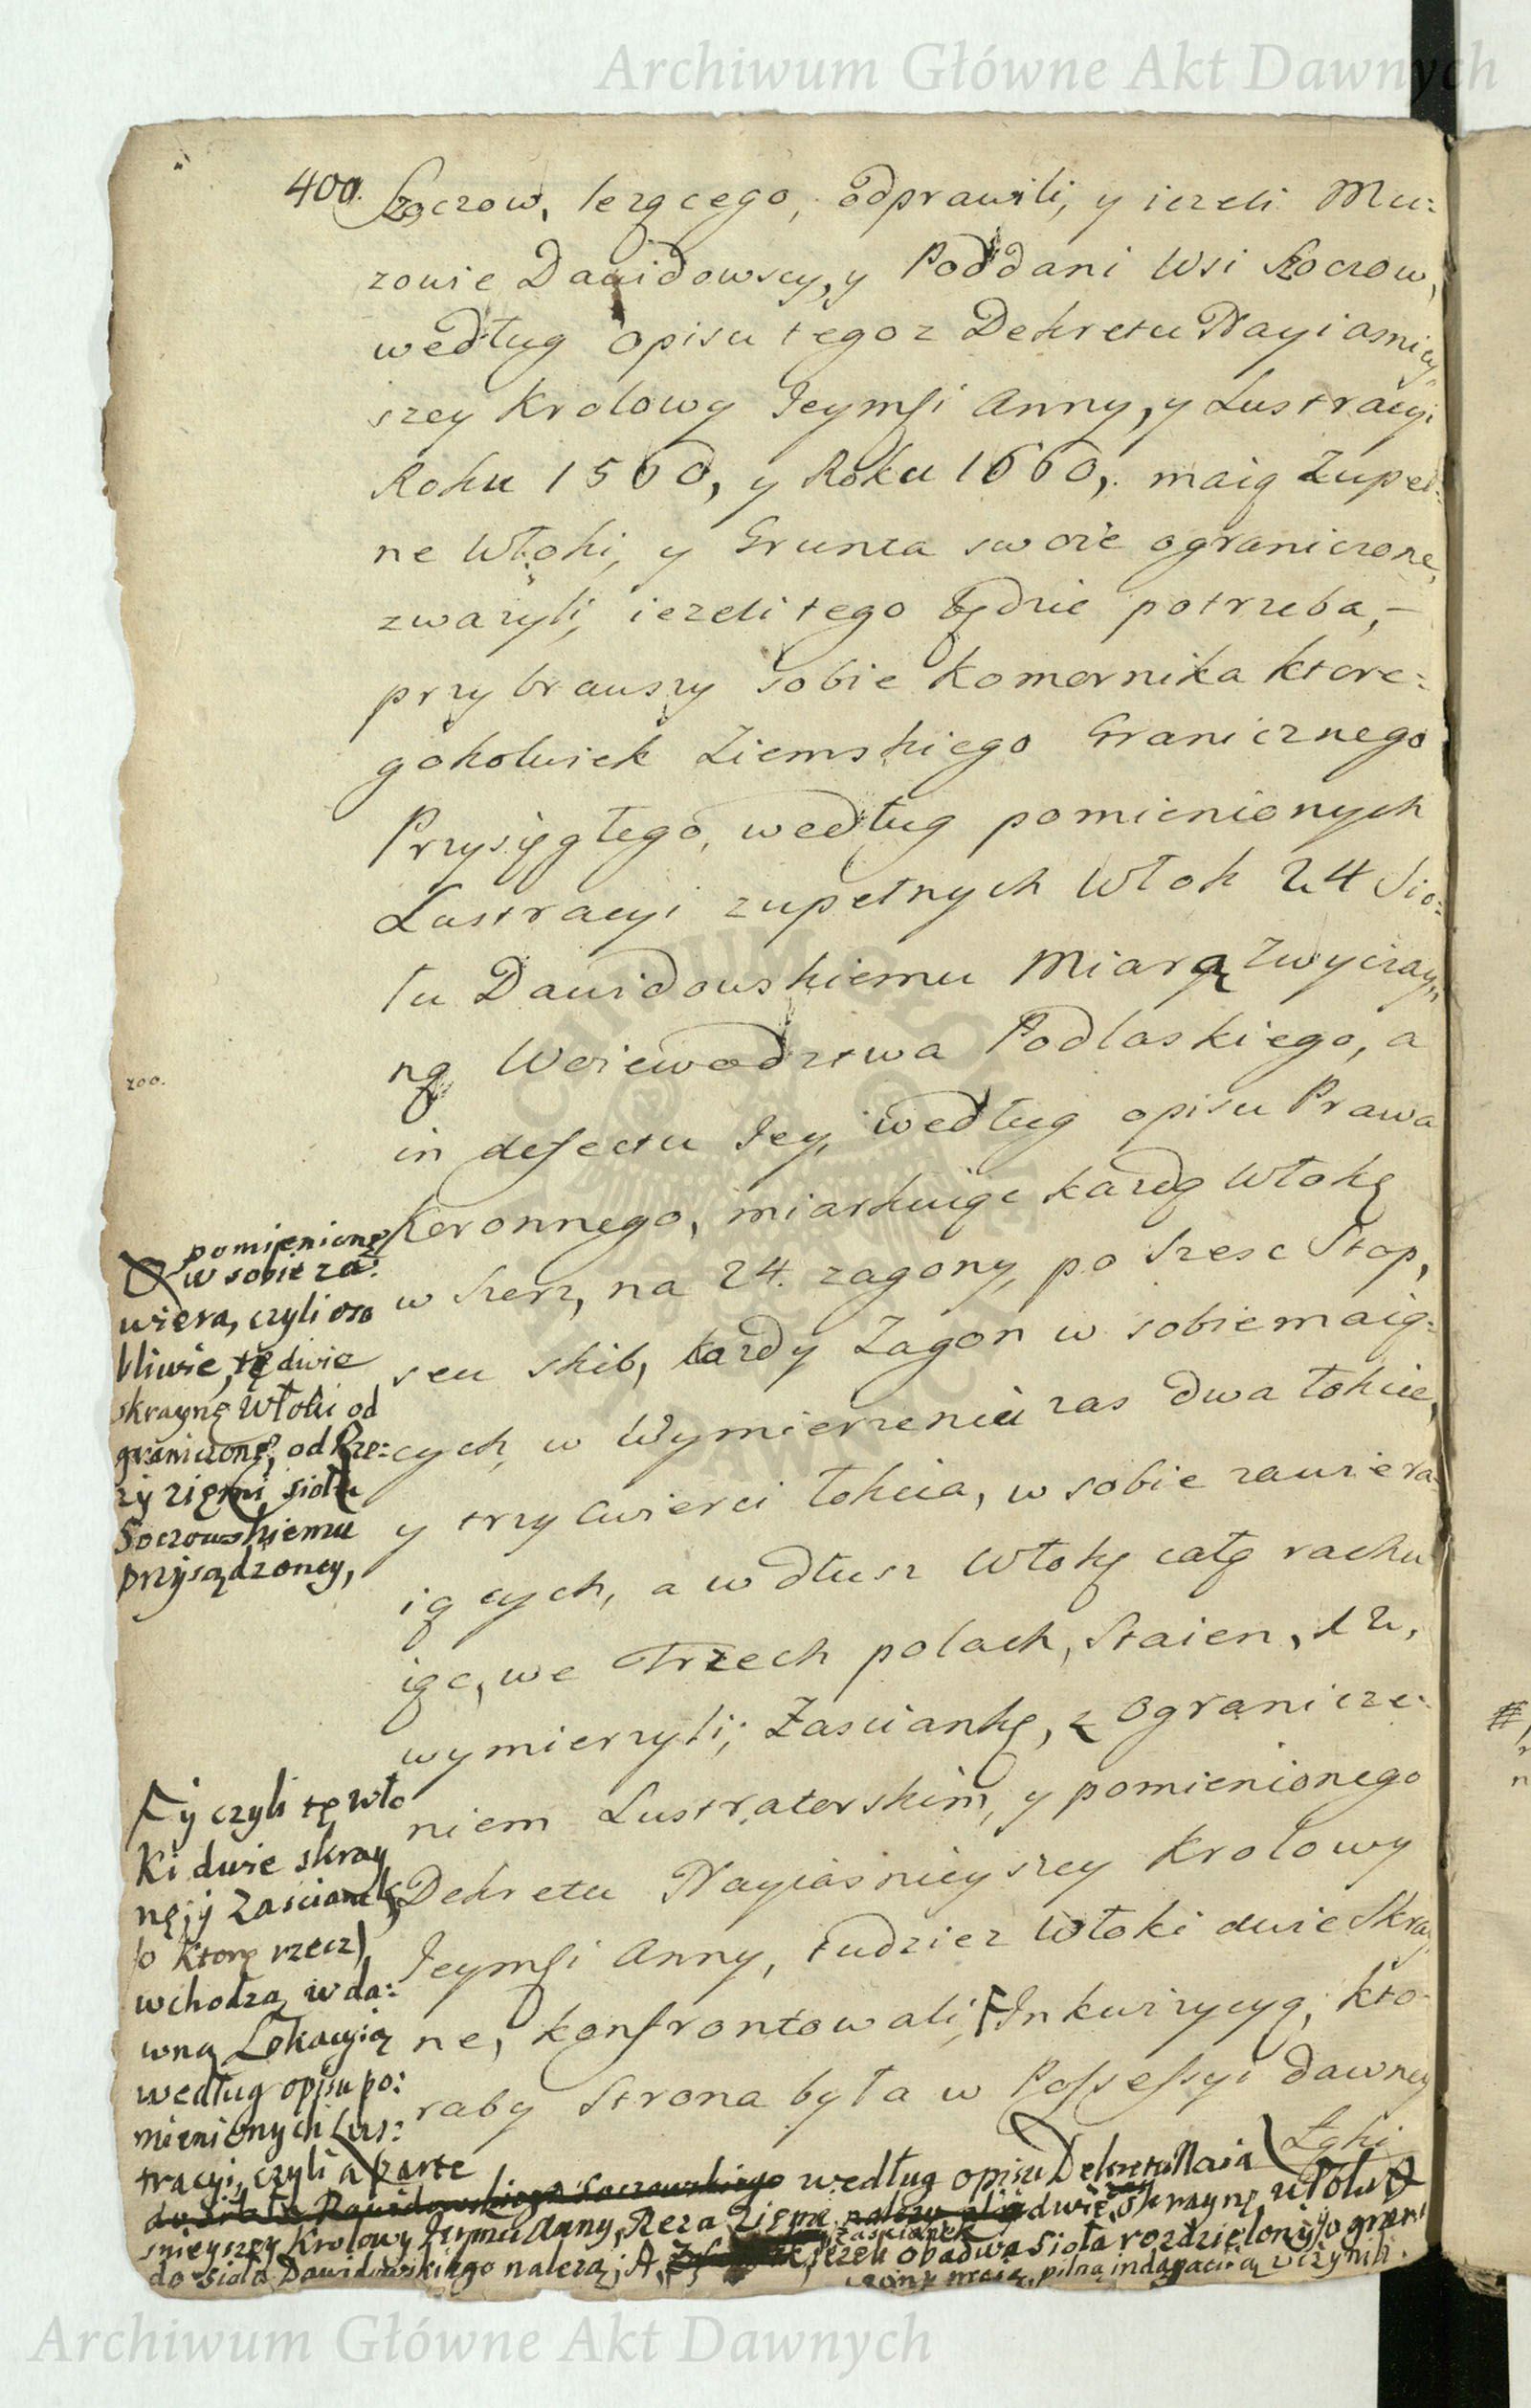 Archiwum Główne Akt Dawnych
400. Szoczow, lezącego, odprawili, y iezeli Mu:
rowie Dawidowscy, y Poddani Wsi Szoczow,
według opisu tegoz Dekretu Nayiasniey
szey Krolowy Jeymsi Anny, y Lustracyi
Roku 1560, y Roku 1660, maią Zupeł:
ne Włoki, y Grunta swoie ograniczone,
zwazyli, iezeli tego będzie potrzeba,
przybrawszy sobie Komornika ktore:
gokolwiek Ziemskiego Granicznego
Przysięgłego, według pomienionych
Lustracyi zupełnych Włok 24 Sio:
łu Dawidowskiemu Miarą zwyczay
ną Woiewodztwa Podlaskiego, a
200.
in defectu Jey, według opisu Prawa
Koronnego, miarkuiąc kazdą Włokę
w Szerz, na 24. zagony, po Szesc Stop,
seu skib, kazdy Zagon w sobie maią:
cych, w Wymierzeniu zas dwa łokcie,
y trzy cwierci łokcia, w sobie zawiera
iących, a w dłusz Włokę całą rachu
iąc, we Trzech polach, Staien, 12,
wymierzyli; Zasciankę, z Ogranicze:
niem Lustratorskim, y pomienionego
Dekretu Nayiasnieyszey Krolowy
Jeymsi Anny, tudziez Włoki dwie Skray
ne, konfrontowali, Inkwizycyą, kto
raby Strona była w Possessyi dawney
Łąki
pomienionę
w sobie za:
wiera, czyli oso
bliwie, tę dwie
skraynę Włoki od
graniczonę, od Rze:
zy ziemi siołu
Soczowskiemu
przysądzoney,
y czyli tę Wło
ki dwie skray
nę, y Zascianek,
/o ktorę rzecz/
wchodzą w da:
wną Lokacyią
według opisu po:
mienionych Lus:
tracyi, czyli aparte
według opisu Dekretu Naia
snieyszey Krolowy Jeymsci Anny, Reza Ziemi dwie skraynę Włoki
do sioła Dawidowskiego nalezą; A, zascianek jezeli obadwa sioła rozdzielony, y ograni
czony maią, pilną indagacyią uczynili.
Archiwum Główne Akt Dawnych